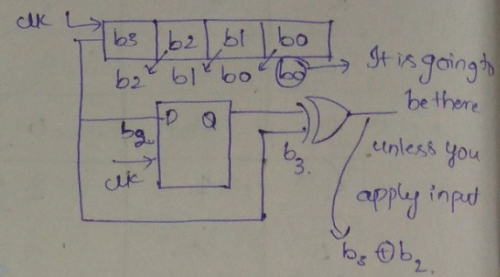 clk
b3 b2 b1 b0
b2 b1 b0 b0
It is going to
be there
unless you
apply input
D Q
b2
clk
b3.
b3 ⊕ b2.